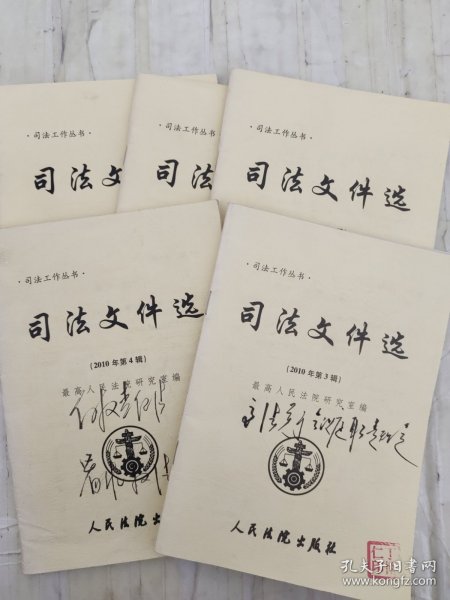 ·司法工作丛书·
司法文
·司法工作丛书·
司法
·司法工作丛书·
司法文件选
·司法工作丛书·
司法文件选
(2010年第4辑)
最高人民法院研究室编
人民法院出
·司法工作丛书·
司法文件选
(2010年第3辑)
最高人民法院研究室编
人民法院出版社
孔夫子旧书网
www.kongfz.com